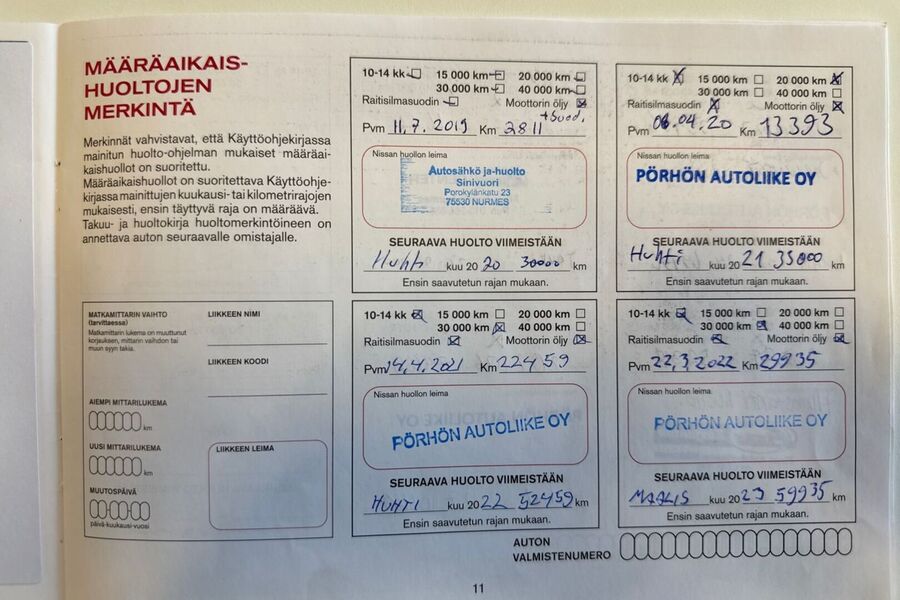 MÄÄRÄAIKAIS-
HUOLTOJEN
MERKINTÄ
Merkinnät vahvistavat, että Käyttöohjekirjassa
mainitun huolto-ohjelman mukaiset määräai-
kaishuollot on suoritettu.
Määräaikaishuollot on suoritettava Käyttöohje-
kirjassa mainittujen kuukausi- tai kilometrirajojen
mukaisesti, ensin täyttyvä raja on määräävä.
Takuu- ja huoltokirja huoltomerkintöineen on
annettava auton seuraavalle omistajalle.
10-14 kk 15 000 km 20 000 km
30 000 km 40 000 km
Raitisilmasuodin Moottorin öljy
+Suod.
Pvm 11.7.2019 Km 2811
Nissan huollon leima
Autosähkö ja-huolto
Sinivuori
Porokylänkatu 23
75530 NURMES
SEURAAVA HUOLTO VIIMEISTÄÄN
Huhti kuu 20 20 30000 km
Ensin saavutetun rajan mukaan.
10-14 kk 15 000 km 20 000 km
30 000 km 40 000 km
Raitisilmasuodin Moottorin öljy
Pvm 06.04.20 Km 13393
Nissan huollon leima
PÖRHÖN AUTOLIIKE OY
SEURAAVA HUOLTO VIIMEISTÄÄN
Huhti kuu 20 21 35000 km
Ensin saavutetun rajan mukaan.
MATKAMITTARIN VAIHTO
(tarvittaessa)
Matkamittarin lukema on muuttunut
korjauksen, mittarin vaihdon tai
muun syyn takia.
AIEMPI MITTARILUKEMA
km
UUSI MITTARILUKEMA
km
MUUTOSPÄIVÄ
päivä-kuukausi-vuosi
LIIKKEEN NIMI
LIIKKEEN KOODI
LIIKKEEN LEIMA
10-14 kk 15 000 km 20 000 km
30 000 km 40 000 km
Raitisilmasuodin Moottorin öljy
Pvm 14.4.2021 Km 22459
Nissan huollon leima
PÖRHÖN AUTOLIIKE OY
SEURAAVA HUOLTO VIIMEISTÄÄN
HUHTI kuu 20 22 52459 km
Ensin saavutetun rajan mukaan.
10-14 kk 15 000 km 20 000 km
30 000 km 40 000 km
Raitisilmasuodin Moottorin öljy
Pvm 22.3.2022 Km 29935
Nissan huollon leima
PÖRHÖN AUTOLIIKE OY
SEURAAVA HUOLTO VIIMEISTÄÄN
MAALIS kuu 20 23 59935 km
Ensin saavutetun rajan mukaan.
AUTON
VALMISTENUMERO
11